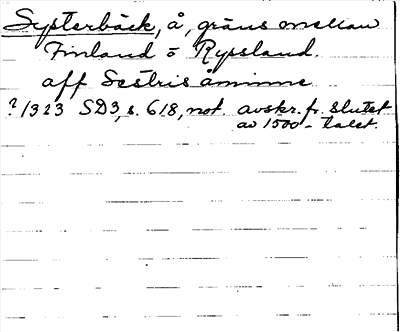 Systerbäck, å, gräns mellan
Finland o Ryssland.
aff Sestris åminne
? 1323 SD3, s. 618, not. avskr. fr. slutet
av 1500-talet.